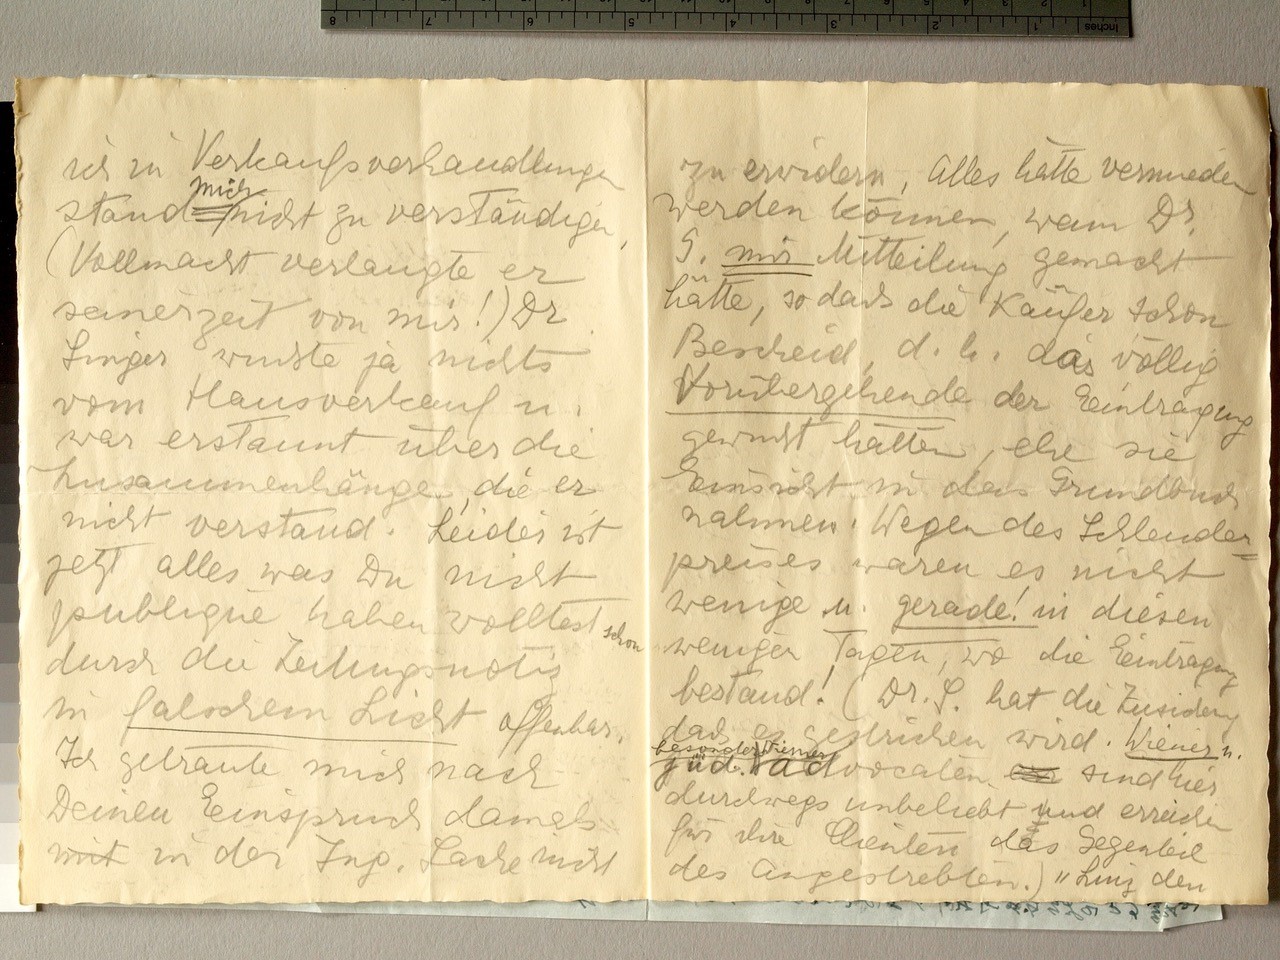 ich in Verkaufsverhandlungen
mich
stand nicht zu verständigen,
(Vollmacht verlangte er
seinerzeit von mir!) Dr.
Singer wußte ja nichts
vom Hausverkauf u.
war erstaunt über die
Zusammenhänge, die er
nicht verstand. Leider ist
jetzt alles was Du nicht
publique haben wolltest schon
durch die Zeitungsnotiz
in falschem Licht offenbar.
Ich getraute mich nach
Deinem Einspruch damals
mit in der Ing. Sache nicht
zu erwidern, Alles hätte vermieden
werden können, wenn Dr.
S. mir Mitteilung gemacht
hätte, so daß die Käufer schon
Bescheid, d. h. das völlig
Vorübergehende der Eintragung
gewußt hätten, ehe sie
Einsicht in das Grundbuch
nahmen. Wegen des Schleuder=
preises waren es nicht
wenige u. gerade! in diesen
wenigen Tagen, wo die Eintragung
bestand! (Dr. S. hat die Zusicherung
daß es gestrichen wird. Wiener u.
besonders Wiener
jüd. Advocaten sind hier
durchwegs unbeliebt und erreichen
für ihre Clienten das Gegenteil
des Angestrebten.) "Linz den
8 7 6 5 4 3 2 1 Inches